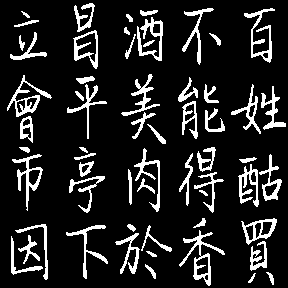 百姓酤買
不能得香
酒美肉於
昌平亭下
立會市因